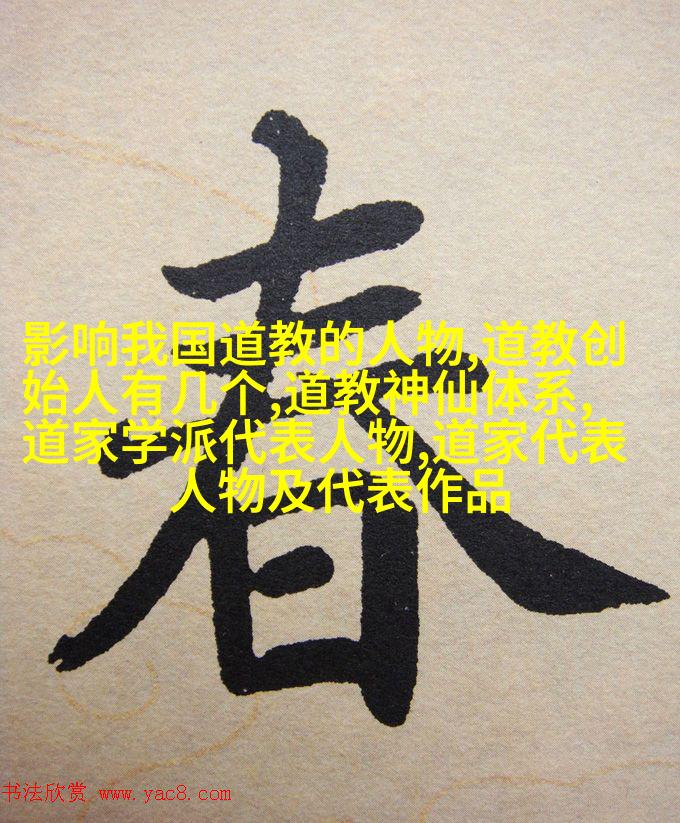 春
影响我国道教的人物,道教创
始人有几个,道教神仙体系,
道家学派代表人物,道家代表
人物及代表作品
书法欣赏 www.yac8.com